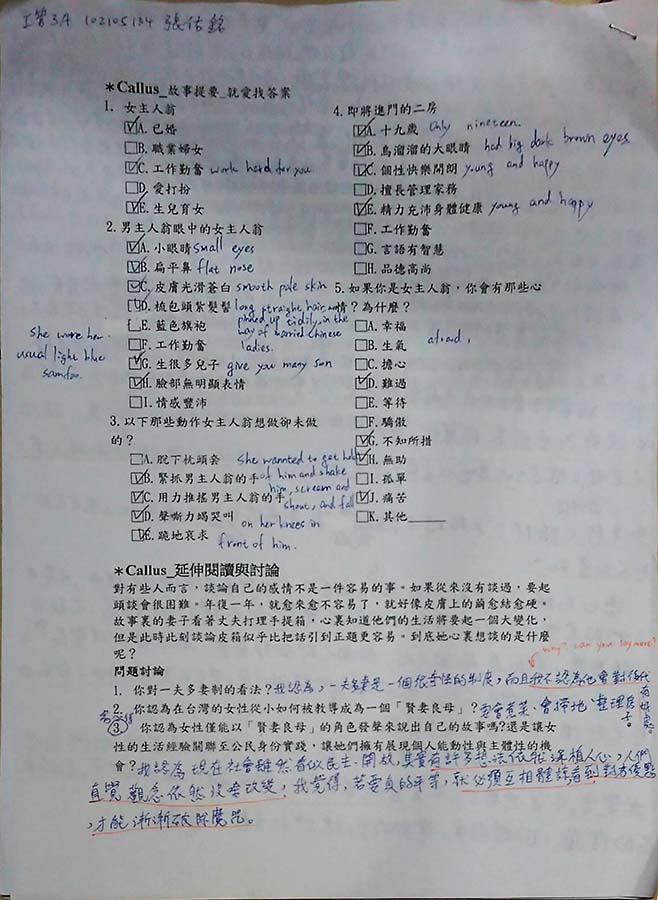 工管3A 102105134 張佑銘
*Callus_故事提要_就愛找答案
1. 女主人翁
☑A. 已婚
☐B. 職業婦女
☑C. 工作勤奮 work hard for you
☐D. 愛打扮
☑E. 生兒育女
2. 男主人翁眼中的女主人翁
☑A. 小眼睛 small eyes
☑B. 扁平鼻 flat nose
☑C. 皮膚光滑蒼白 smooth pale skin
☑D. 梳包頭紮髮髻 long straight hair
pinned up tidily in the
way of married chinese
ladies.
☐E. 藍色旗袍
She wore her
usual light blue
samfoo.
☐F. 工作勤奮
☑G. 生很多兒子 give you many son
☑H. 臉部無明顯表情
☐I. 情感豐沛
3. 以下那些動作女主人翁想做卻未做
的？
☐A. 脫下枕頭套
☑B. 緊抓男主人翁的手
☑C. 用力推搖男主人翁的手
☑D. 聲嘶力竭哭叫
☑E. 跪地哀求
She wannted to get hold
of him and shake
him, scream and
shout, and fall
on her knees in
front of him.
4. 即將進門的二房
☑A. 十九歲 Only nineteen
☑B. 烏溜溜的大眼睛 had big dark brown eyes
☑C. 個性快樂開朗 young and happy
☐D. 擅長管理家務
☑E. 精力充沛身體健康 young and happy
☐F. 工作勤奮
☐G. 言語有智慧
☐H. 品德高尚
5. 如果你是女主人翁，你會有那些心
情？為什麼？
☐A. 幸福
☐B. 生氣
afraid,
☐C. 擔心
☑D. 難過
☐E. 等待
☐F. 驕傲
☑G. 不知所措
☑H. 無助
☐I. 孤單
☑J. 痛苦
☐K. 其他
*Callus_延伸閱讀與討論
對有些人而言，談論自己的感情不是一件容易的事。如果從來沒有談過，要起
頭談會很困難。年復一年，就愈來愈不容易了，就好像皮膚上的繭愈結愈硬。
故事裏的妻子看著丈夫打理手提箱，心裏知道他們的生活將要起一個大變化，
但是此時此刻談論皮箱似乎比把話引到正題更容易。到底她心裏想談的是什麼
呢？
why? can you say more?
問題討論
1. 你對一夫多妻制的看法？我認為，一夫多妻是一個很奇怪的制度，而且我不認為他會對後代
有好處。
2. 你認為在台灣的女性從小如何被教導成為一個「賢妻良母」？要會煮菜、會掃地、整理房
子。
③ 你認為女性僅能以「賢妻良母」的角色發聲來說出自己的故事嗎?還是讓女
性的生活經驗關聯至公民身份實踐，讓她們擁有展現個人能動性與主體性的機
會？我認為現在社會雖然看似民主、開放，其實有許多想法依然深植人心，人們
觀念依然沒要改變，我覺得，若要真的平等，就必須互相體諒看到對方優點
，才能漸漸破除魔咒。